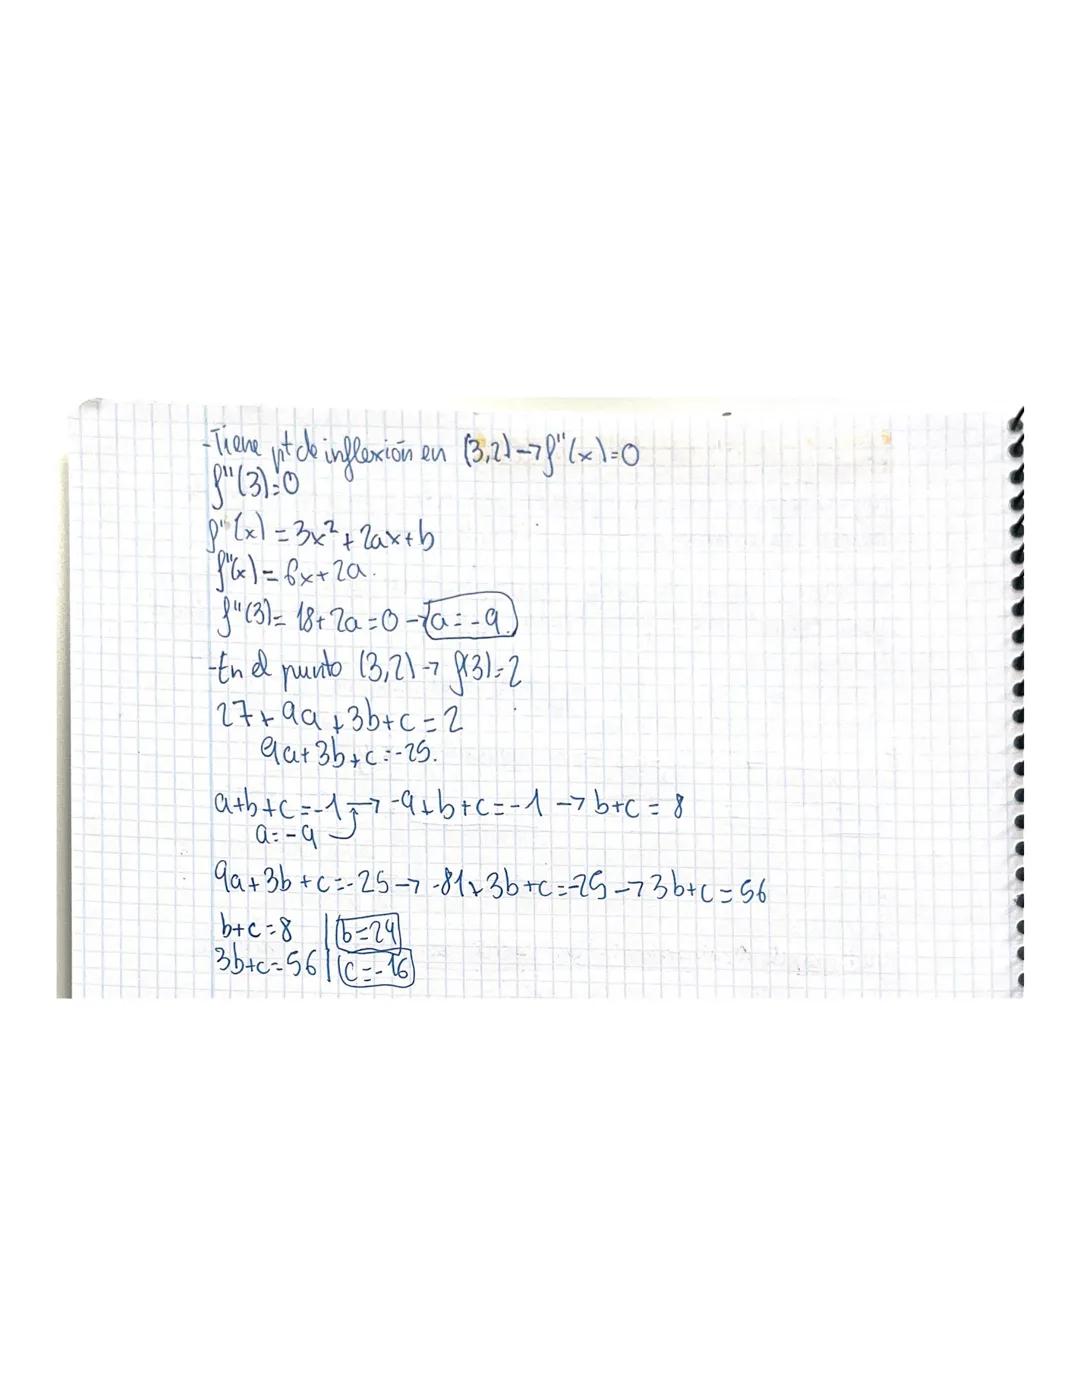 -Tiene pt de inflexión en (3,2)→f''(x)=0
f''(3)=0
f''(x)=3x²+2ax+b
f''(x)=6x+2a.
f''(3)=18+2a=0→a=-9.
-En el punto (3,2)→f(3)=2
27+9a+3b+c=2
9a+3b+c=-25.
a+b+c=-1→-9+b+c=-1→b+c=8
a=-9
9a+3b+c=-25→-81+3b+c=-25→3b+c=56
b+c=8 | b=24
3b+c=56 | c=-16